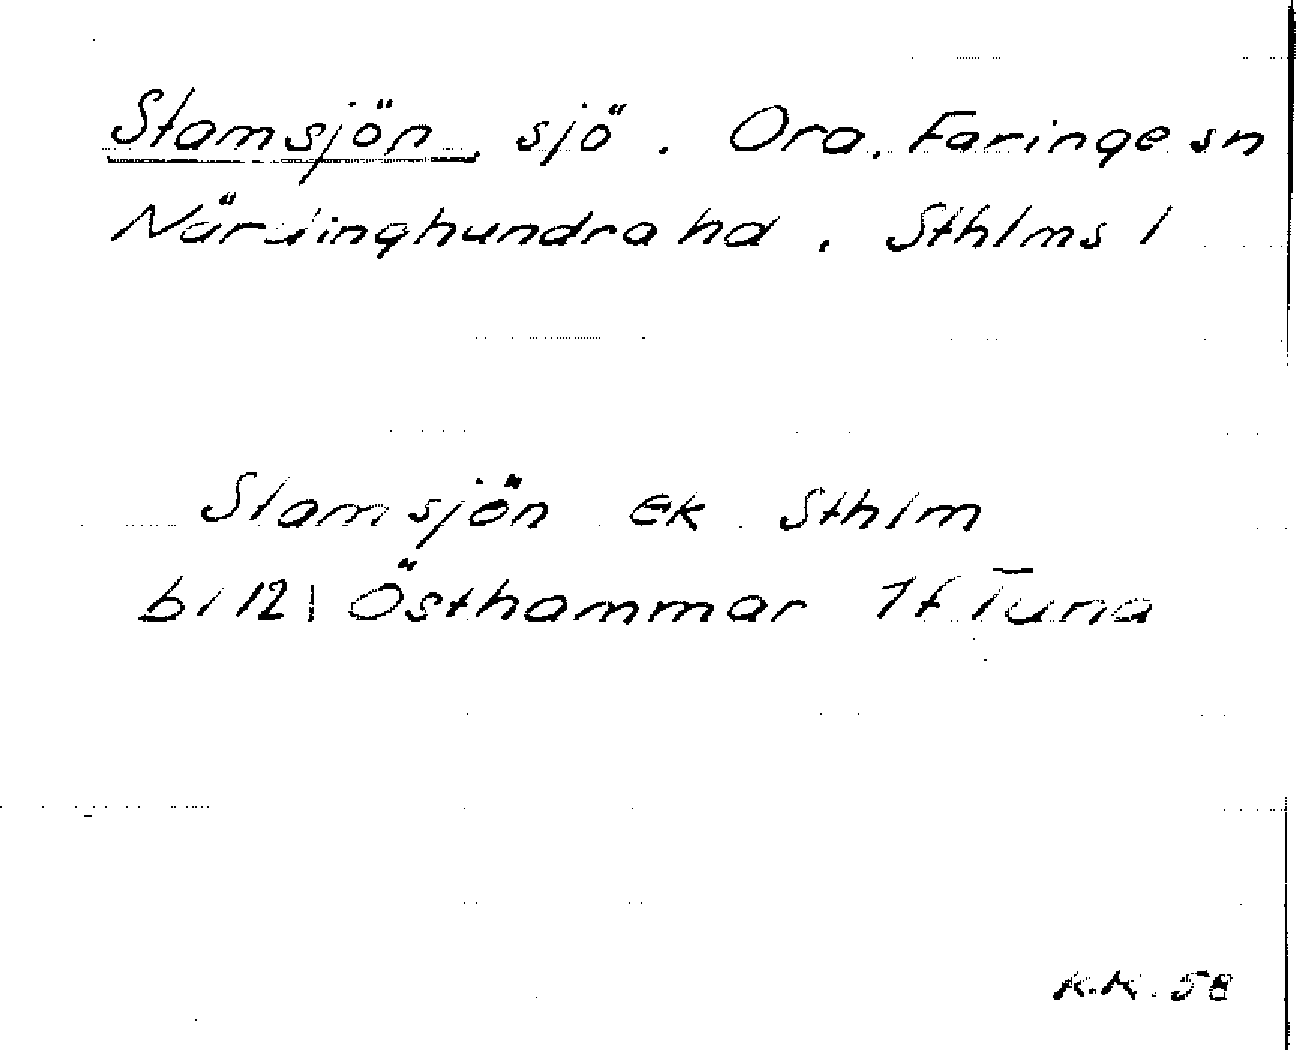 Slamsjön, sjö. Ora, Faringe sn
Närdinghundra hd, Sthlms l
Slamsjön ek Sthlm
bl 12I Östhammar 1f Tuna
K.K. 58